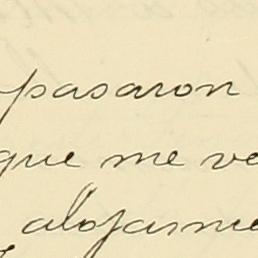 pasaron
que me ve
alojarme